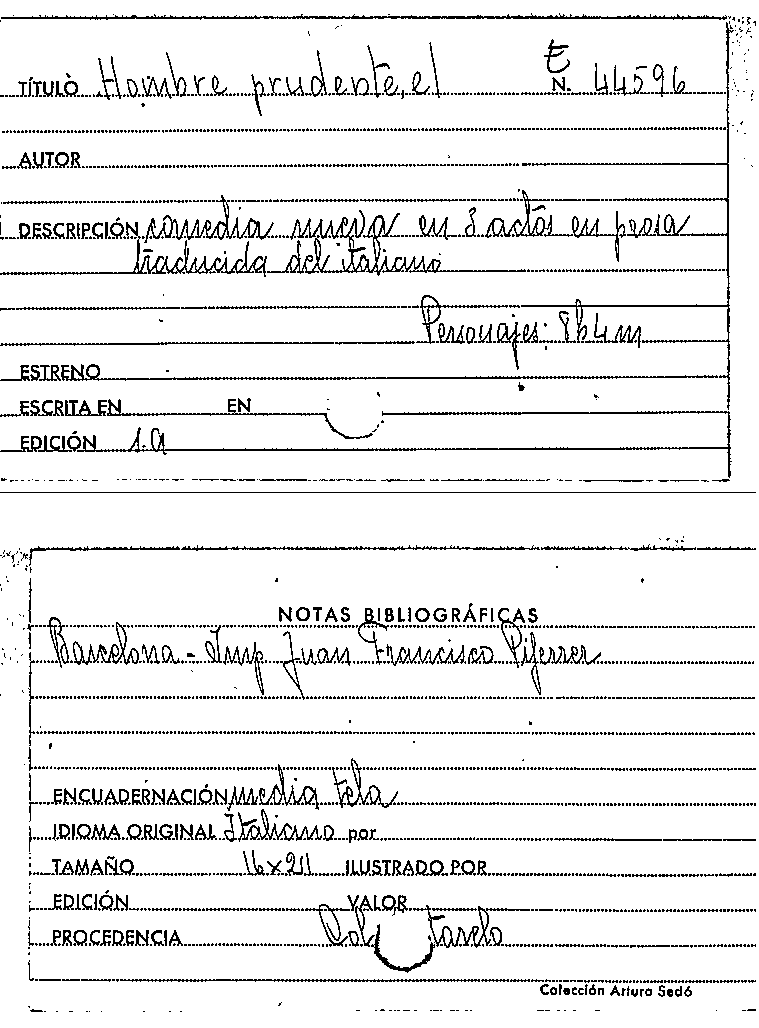 TÍTULO Hombre prudente, el E N. 44596
AUTOR
DESCRIPCIÓN comedia nueva en 3 actos en prosa
traducida del italiano
Personajes: 8h4m
ESTRENO
ESCRITA EN EN
EDICIÓN 1.a
NOTAS BIBLIOGRÁFICAS
Barcelona - Imp Juan Francisco Piferrer
ENCUADERNACIÓN media tela
IDIOMA ORIGINAL Italiano por
TAMAÑO 16x211 ILUSTRADO POR
EDICIÓN VALOR
PROCEDENCIA
Colección Arturo Sedó